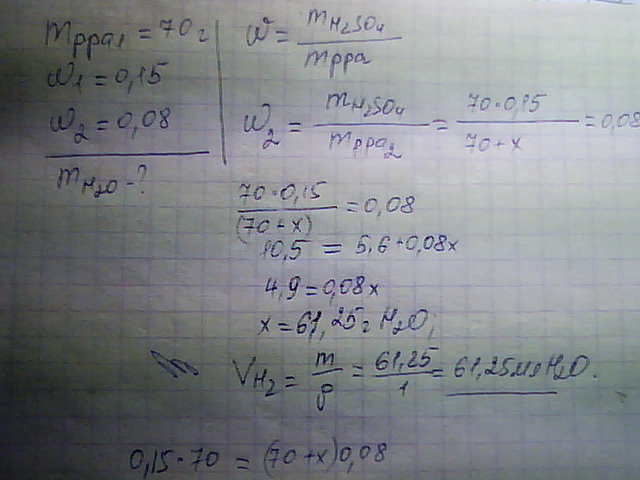 m р-ра1 = 70 г
ω1 = 0,15
ω2 = 0,08
mH2O - ?
ω = mH2SO4 / m р-ра
ω2 = mH2SO4 / m р-ра2 = 70·0,15 / 70+x = 0,08
70·0,15 / (70+x) = 0,08
10,5 = 5,6+0,08x
4,9 = 0,08x
x = 61,25 г H2O;
VH2 = m / ρ = 61,25 / 1 = 61,25 мл H2O.
0,15·70 = (70+x)0,08